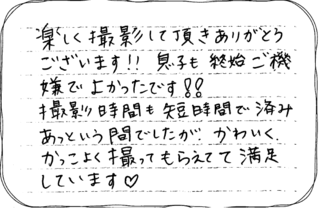 楽しく撮影して頂きありがとう
ございます!! 息子も終始ご機
嫌で よかったです!!
撮影時間も短時間で済み
あっという間でしたが、かわいく、
かっこよく撮ってもらえてて満足
しています♡